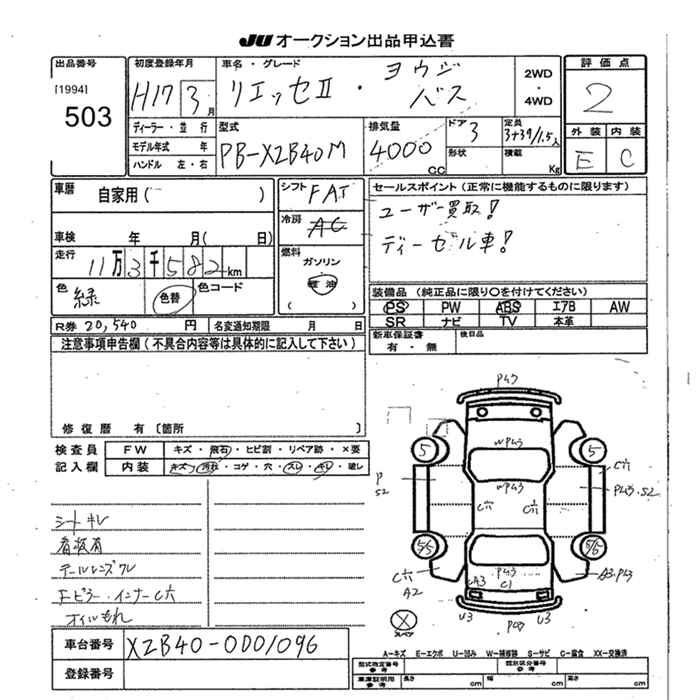 JU オークション出品申込書
出品番号
[1994]
503
初度登録年月
H17 3月
車名・グレード
リエッセⅡ・ヨウジバス
2WD
・
4WD
評価点
2
外装 内装
E C
ディーラー・並 行
モデル年式 年
ハンドル 左・右
型式
PB-XZB40M
排気量
4000
cc
ドア
3
形状
定員
3+39/1.5人
積載
Kg
車歴 自家用( )
車検 年 月( 日)
走行 11万3千582km
色
緑
色替
色コード
シフト FAT
冷房 AC
燃料
ガソリン
軽油
( )
セールスポイント(正常に機能するものに限ります)
ユーザー買取!
ディーゼル車!
装備品(純正品に限り○を付けてください)
PS PW ABS エアB AW
SR ナビ TV 本革
新車保証書
有・無
後日品
R券 20,540 円
名変通知期限 月 日
注意事項申告欄(不具合内容等は具体的に記入して下さい)
修復歴 有〔箇所 〕
検査員 FW キズ・飛石・ヒビ割・リペア跡・×要
記入欄 内装 キズ・汚れ・コゲ・穴・スレ・キレ・破レ
シートキレ
看板有
テールレンズワレ
Fピラー・インナーC穴
オイルもれ
P43
WP43
5 5
C穴
P
S2
WP43
P43.S2
C穴 C穴
5/5 5/5
C穴
A2
A3 P43
C1
A3.P43
U3 P43 U3
X
スペア
車台番号 XZB40-0001096
登録番号
A-キズ E-エクボ U-凹み W-補修跡 S-サビ C-腐食 XX-交換済
型式指定番号
参考
類別区分番号
参考
車庫証明用
参考
長さ cm 幅 cm 高さ cm